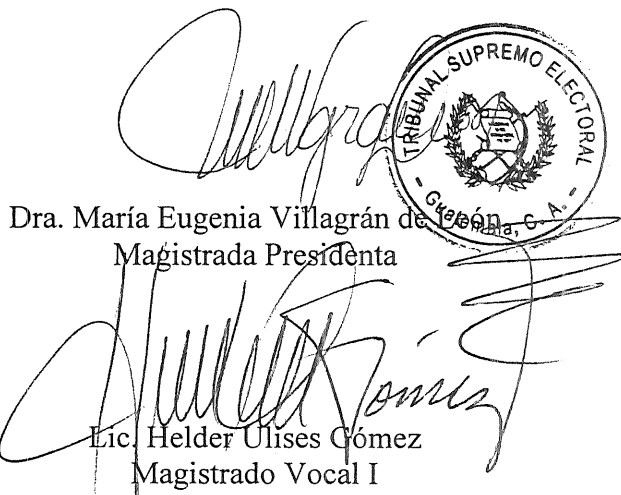 TRIBUNAL SUPREMO ELECTORAL
- Guatemala, C. A. -
Dra. María Eugenia Villagrán de León
Magistrada Presidenta
Gómez
Lic. Helder Ulises Gómez
Magistrado Vocal I